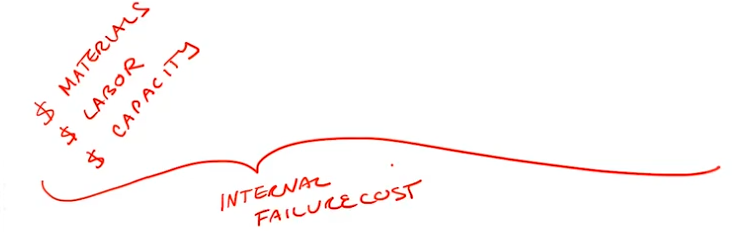 $ MATERIALS
$ LABOR
$ CAPACITY
INTERNAL
FAILURE COST